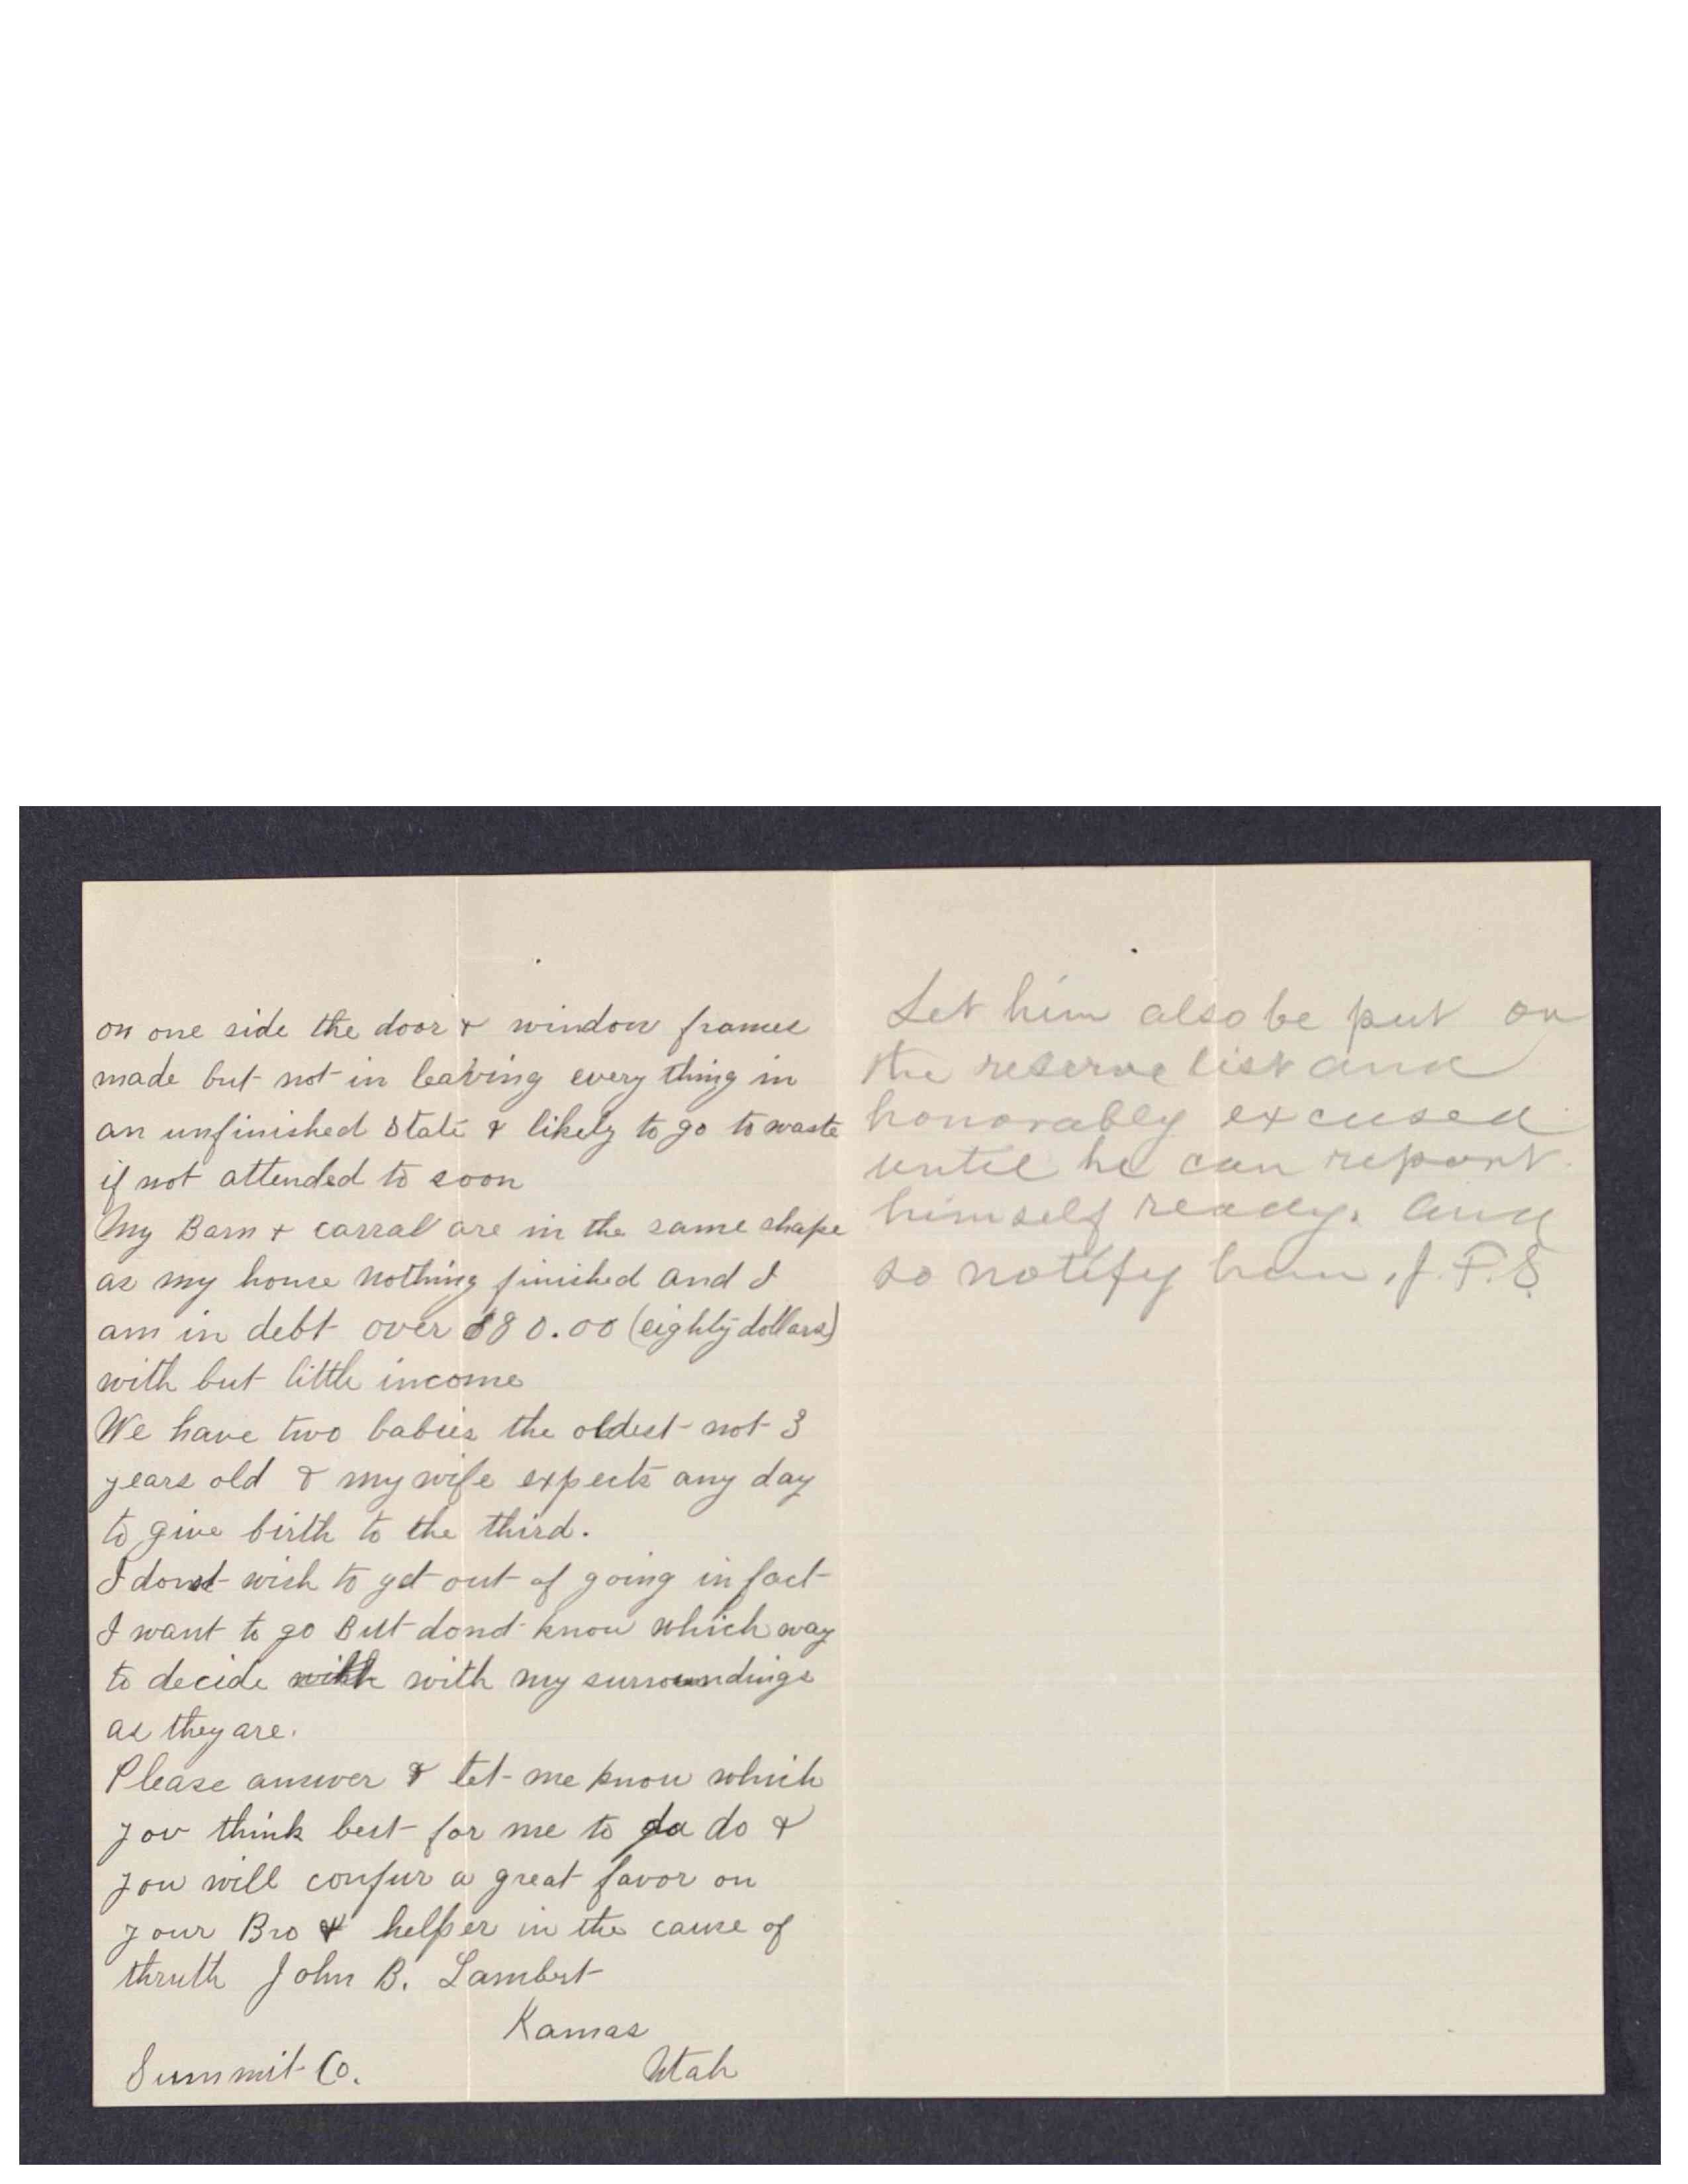 on one side the door & window frames
made but not in leaving every thing in
an unfinished state & likely to go to waste
if not attended to soon
My Barn & carral are in the same shape
as my house nothing finished and I
am in debt over $80.00 (eighty dollars)
with but little income
We have two babies the oldest not 3
years old & my wife expects any day
to give birth to the third.
I dont wish to get out of going in fact
I want to go But dond know which way
to decide with with my surroundings
as they are.
Please answer & let me know which
you think best for me to da do &
you will confur a great favor on
your Bro & helper in the cause of
thruth John B. Lambert
Kamas
Summit Co. Utah
Let him also be put on
the reserve list and
honorably excused
until he can report
himself ready. and
so notify him. J.F.S.